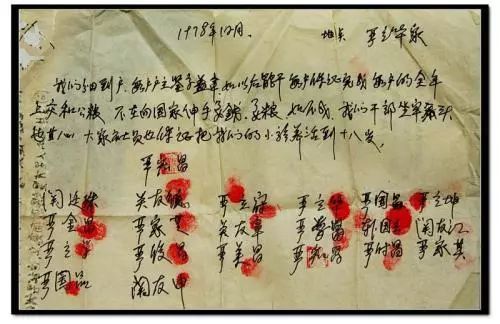 1978年12月. 地点 严立华家
我们分田到户 每户户主签字盖章 如以后能干 每户保证完成每户的全年
上交和公粮 不在向国家伸手要钱 要粮 如不成 我们干部坐牢杀头
也甘心 大家社员也保证把我们的小孩养活到十八岁
严宏昌
关廷珠 关友德 严立富 严立华 严国昌 严立坤
严金昌 严家芝 关友章 严学昌 韩国云 关友江
严立学 严俊昌 严美昌 严付昌 严家其
严国品 关友申